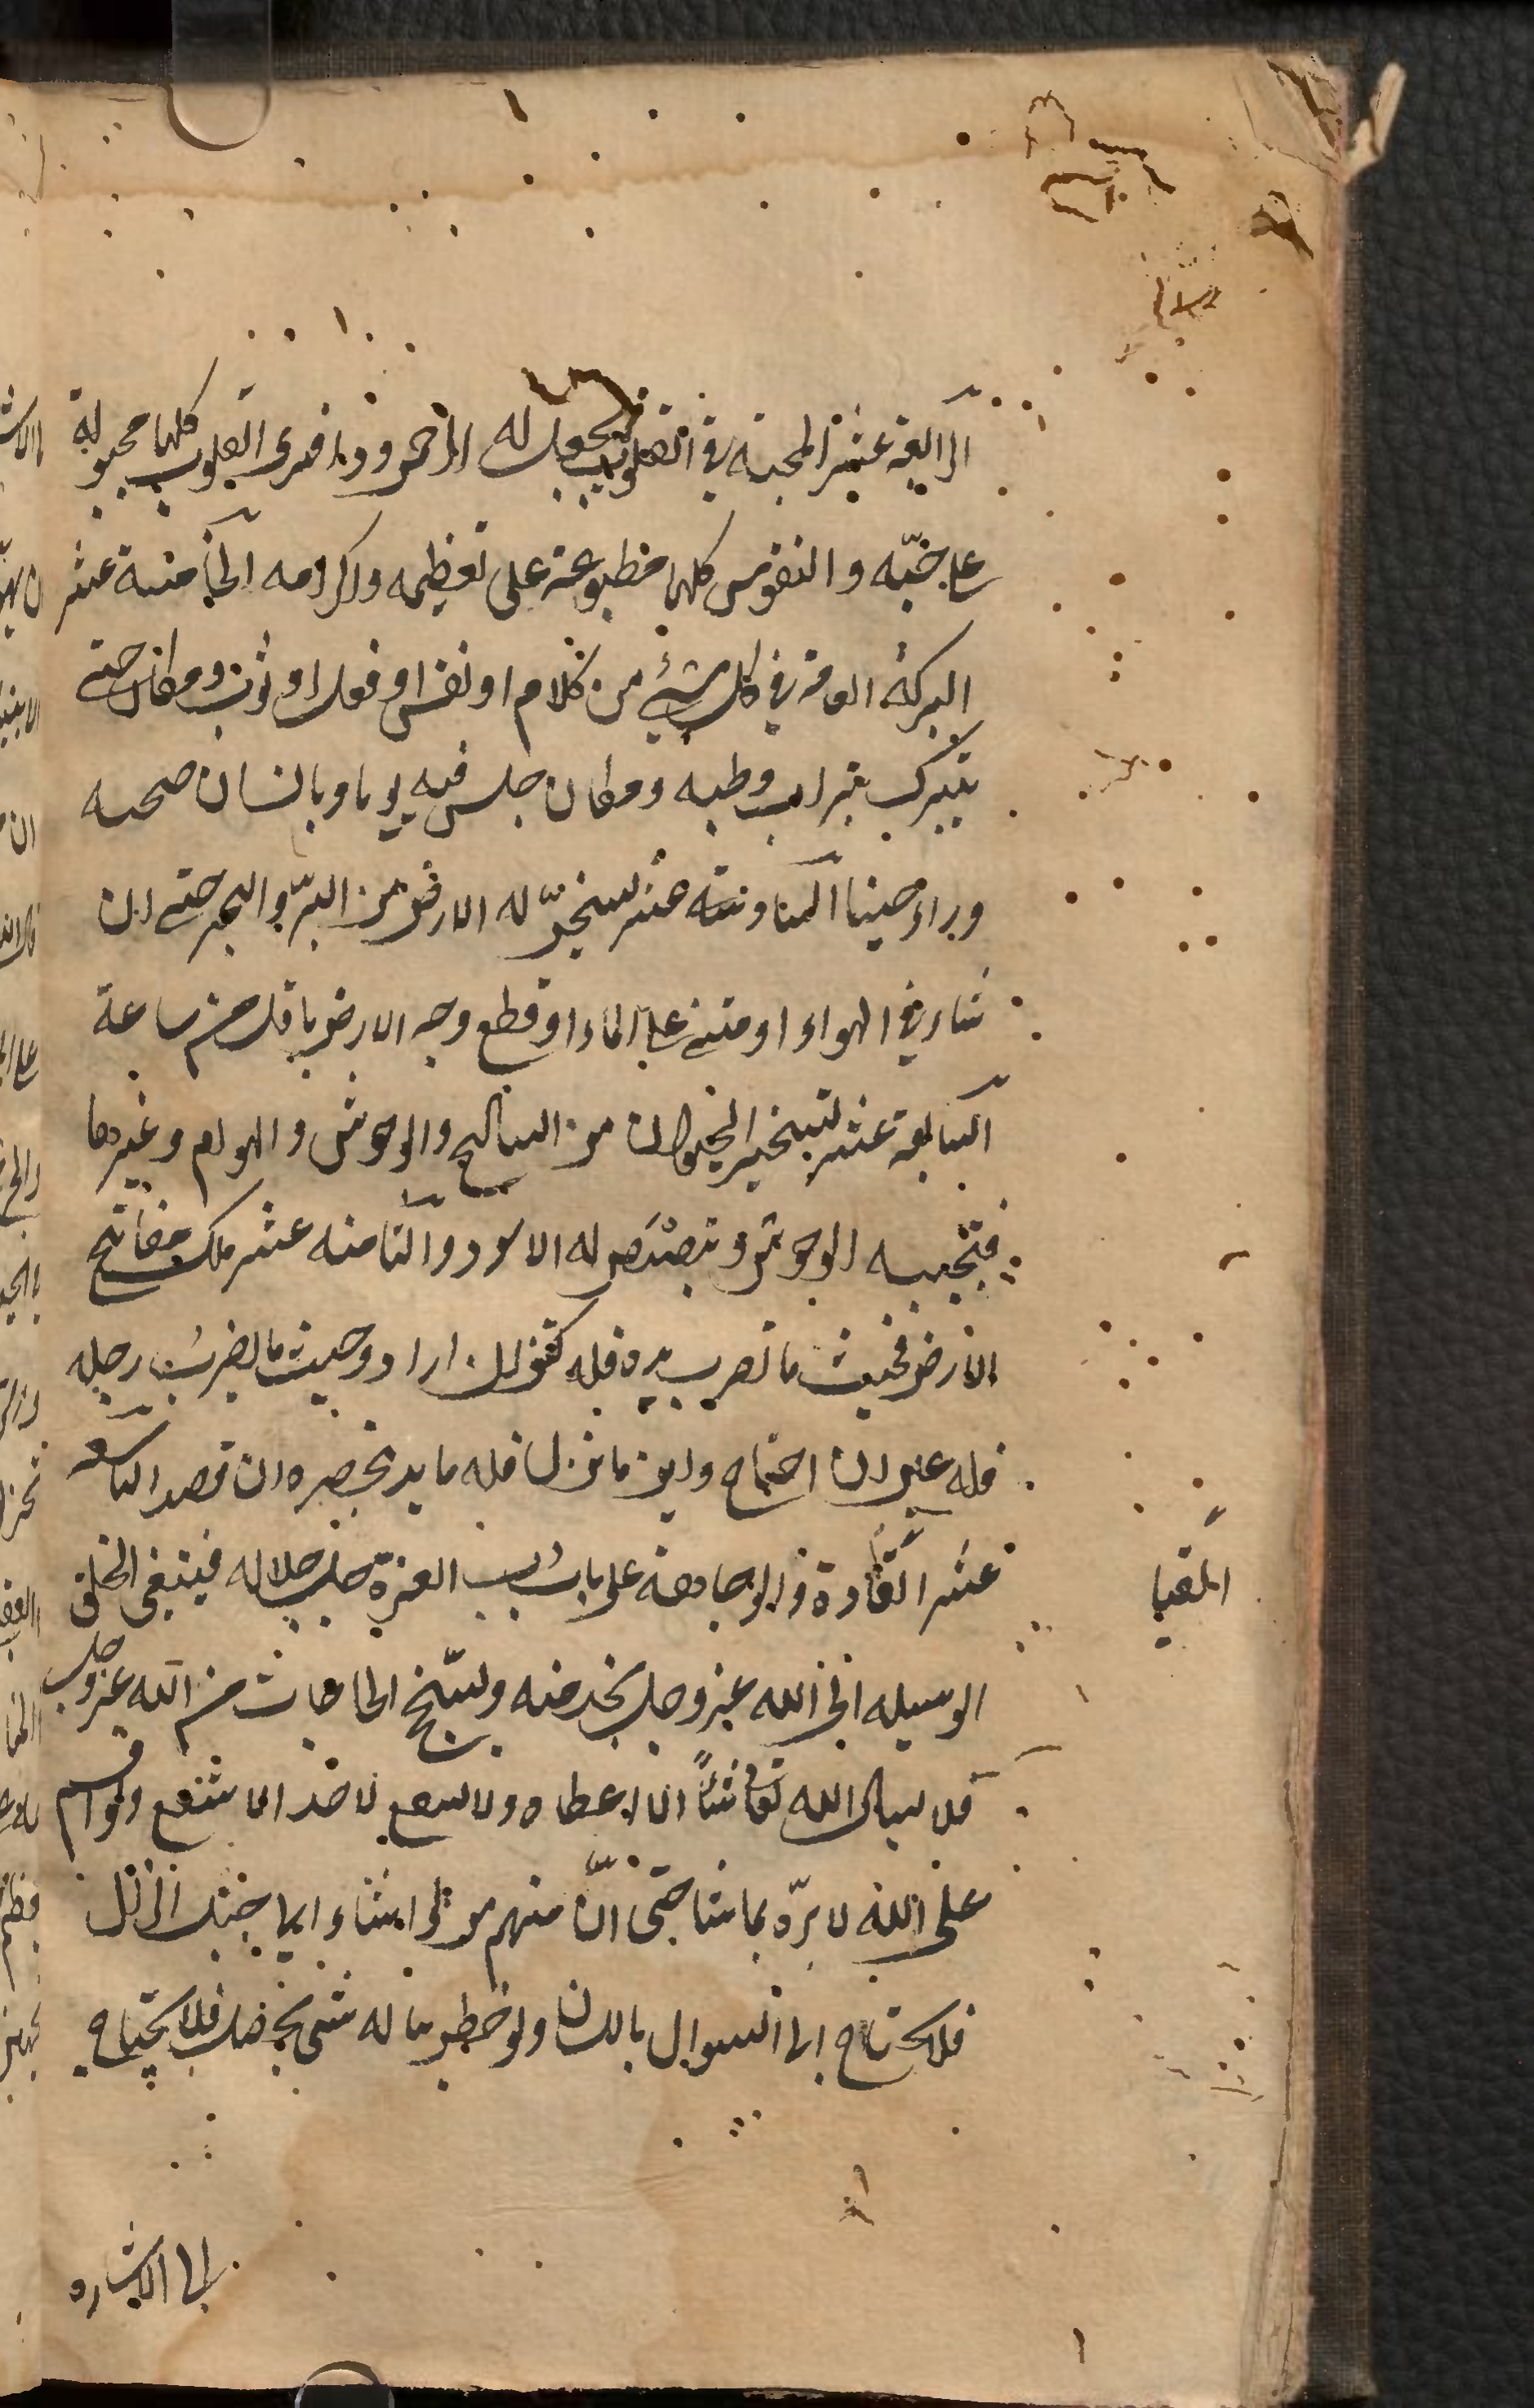 الرابعة عشر المحبة في القلوب فيجعل له الرحمن ودا فترى القلوب كلها مجبولة
على حبّه والنفوس كلها مطبوعة على تعظيمه واكرامه الخامسة عشر
البركة العامة في كل شيء من كلام او نفس او فعل او ثوب ومكان حتى
يتبرك بتراب وطيه ومكان جلس فيه يوما وبانسان صحبه
وراه حينا السادسة عشر تسخير له الارض من البرّ والبحر حتى ان
شاء سار في الهواء او مشى على الماء او قطع وجه الارض باقل من ساعة
السابعة عشر تسخير الحيوان من السباع والوحوش والهوام وغيرها
فتجيبه الوحوش وتبصبص له الاسود والثامنة عشر ملك مفاتيح
الارض فحيث ما تضرب يده فله كنز ان اراد وحيث ما يضرب رجله
فله عين ان احتاج واين ما نزل فله مايدة تحضره ان قصد التاسعة
عشر القيادة والوجاهة على باب رب العزة جل جلاله فيبتغي الخلق
المقيا
الوسيلة الى الله عز وجل بخدمته وتستنجح الحاجات من الله عز وجل
فلا يسال الله تعالى شيئاً الا اعطاه ولا يشفع لاحد الا شفع ولو اقسم
على الله لابرّه بما شا حتى انّ منهم من لو اشار الى جبل لزال
فلا يحتاج الى السوال باللسان ولو خطر بباله شي لحضر فلا يحتاج
الى الاشاره